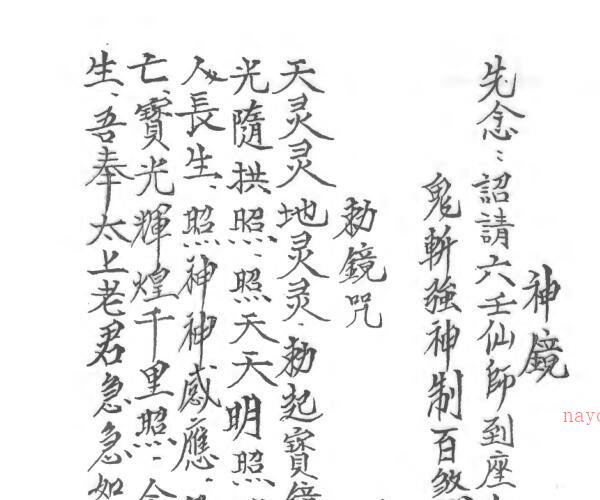 神鏡
先念：詔請六壬仙師到座
鬼斬強神制百煞
勅鏡咒
天灵灵地灵灵.勅起寶鏡
光隨拱照.照天天明照
人々長生.照神神感應.
亡.寶光輝煌千里照.
生.吾奉太上老君急急如